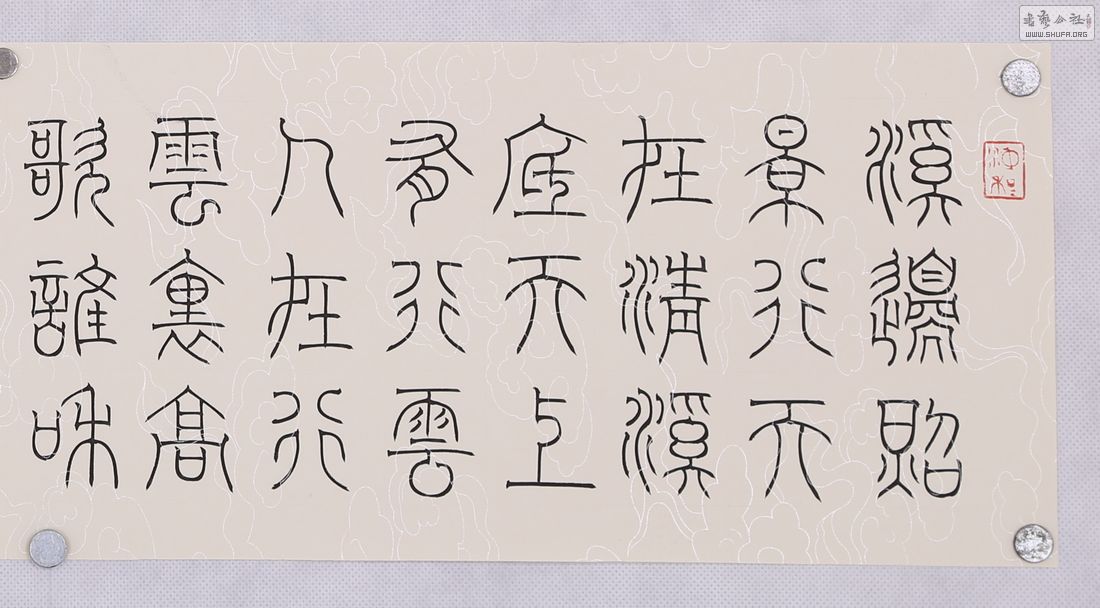 溪邊照
景行天
在清溪
底天上
有行雲
人在行
雲裏高
歌誰和
書藝公社
WWW.SHUFA.ORG